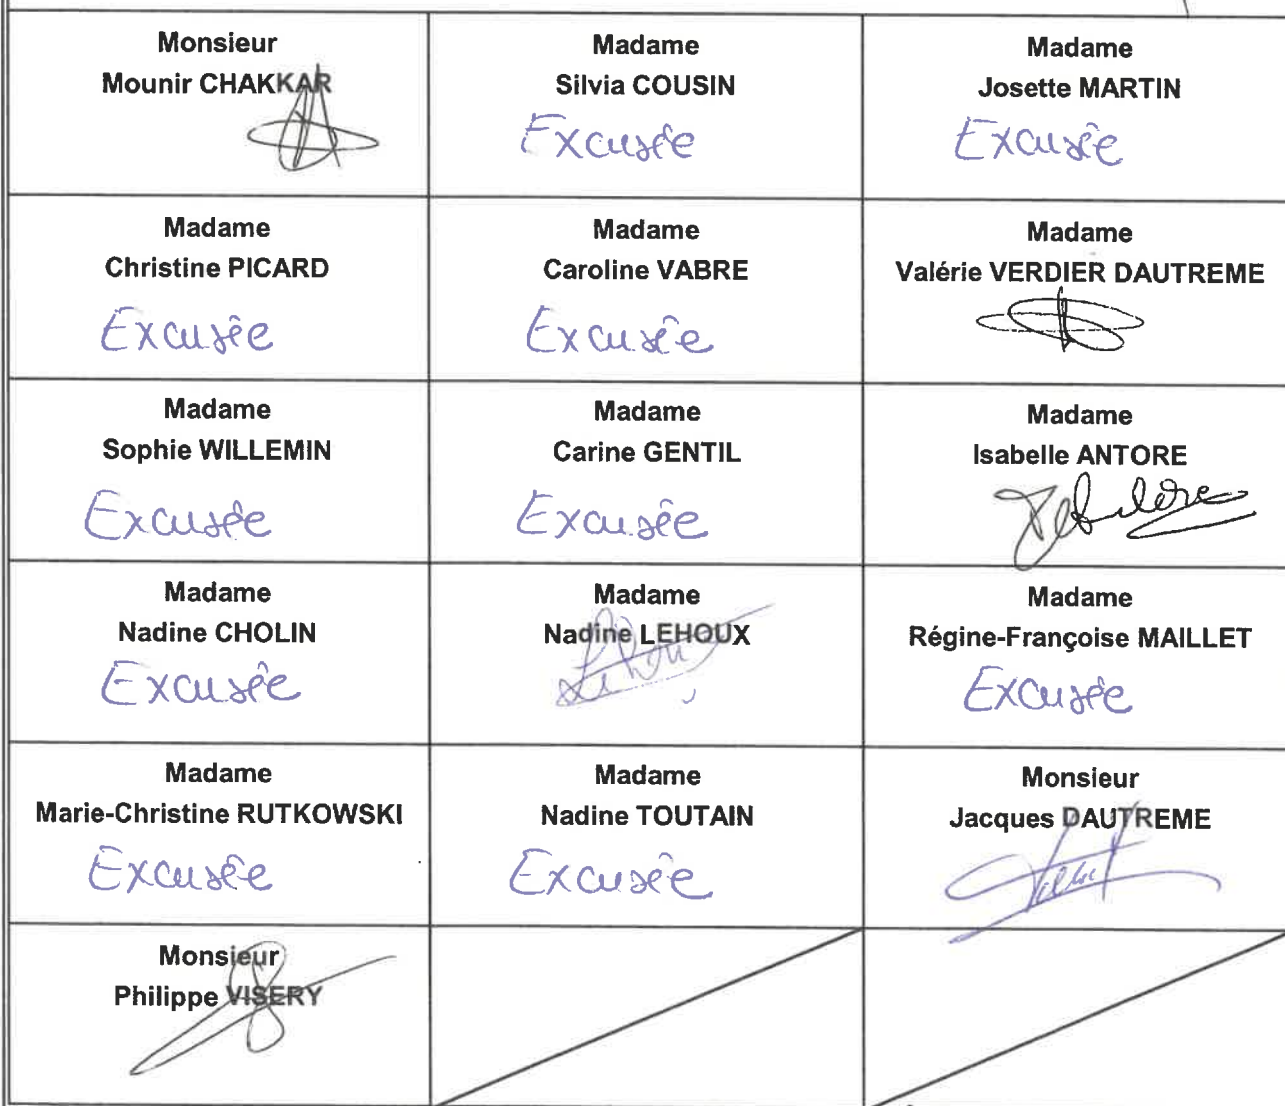 Monsieur
Mounir CHAKKAR
Madame
Silvia COUSIN
Excusée
Madame
Josette MARTIN
Excusée
Madame
Christine PICARD
Excusée
Madame
Caroline VABRE
Excusée
Madame
Valérie VERDIER DAUTREME
Madame
Sophie WILLEMIN
Excusée
Madame
Carine GENTIL
Excusée
Madame
Isabelle ANTORE
Madame
Nadine CHOLIN
Excusée
Madame
Nadine LEHOUX
Madame
Régine-Françoise MAILLET
Excusée
Madame
Marie-Christine RUTKOWSKI
Excusée
Madame
Nadine TOUTAIN
Excusée
Monsieur
Jacques DAUTREME
Monsieur
Philippe VISERY